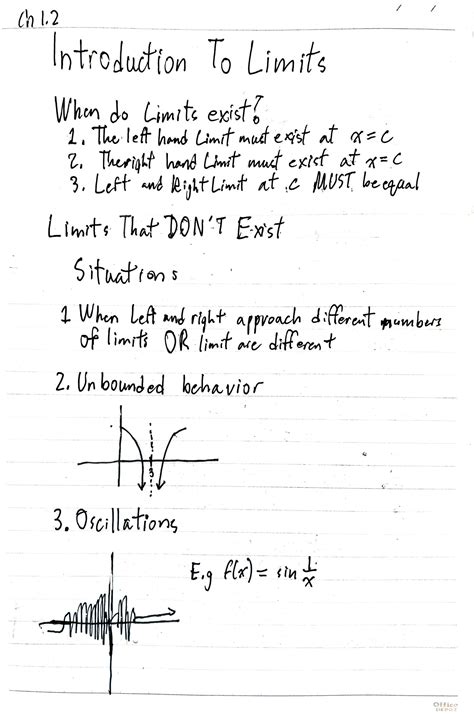 Ch 1.2
Introduction To Limits
When do Limits exist?
1. The left hand Limit must exist at x = c
2. The right hand Limit must exist at x = c
3. Left and Right Limit at c MUST be equal
Limits That DON'T Exist
Situations
1 When Left and right approach different numbers
of limits OR limit are different
2. Unbounded behavior
3
3. Oscillations
E.g f(x) = sin 1/x
Office
DEPOT